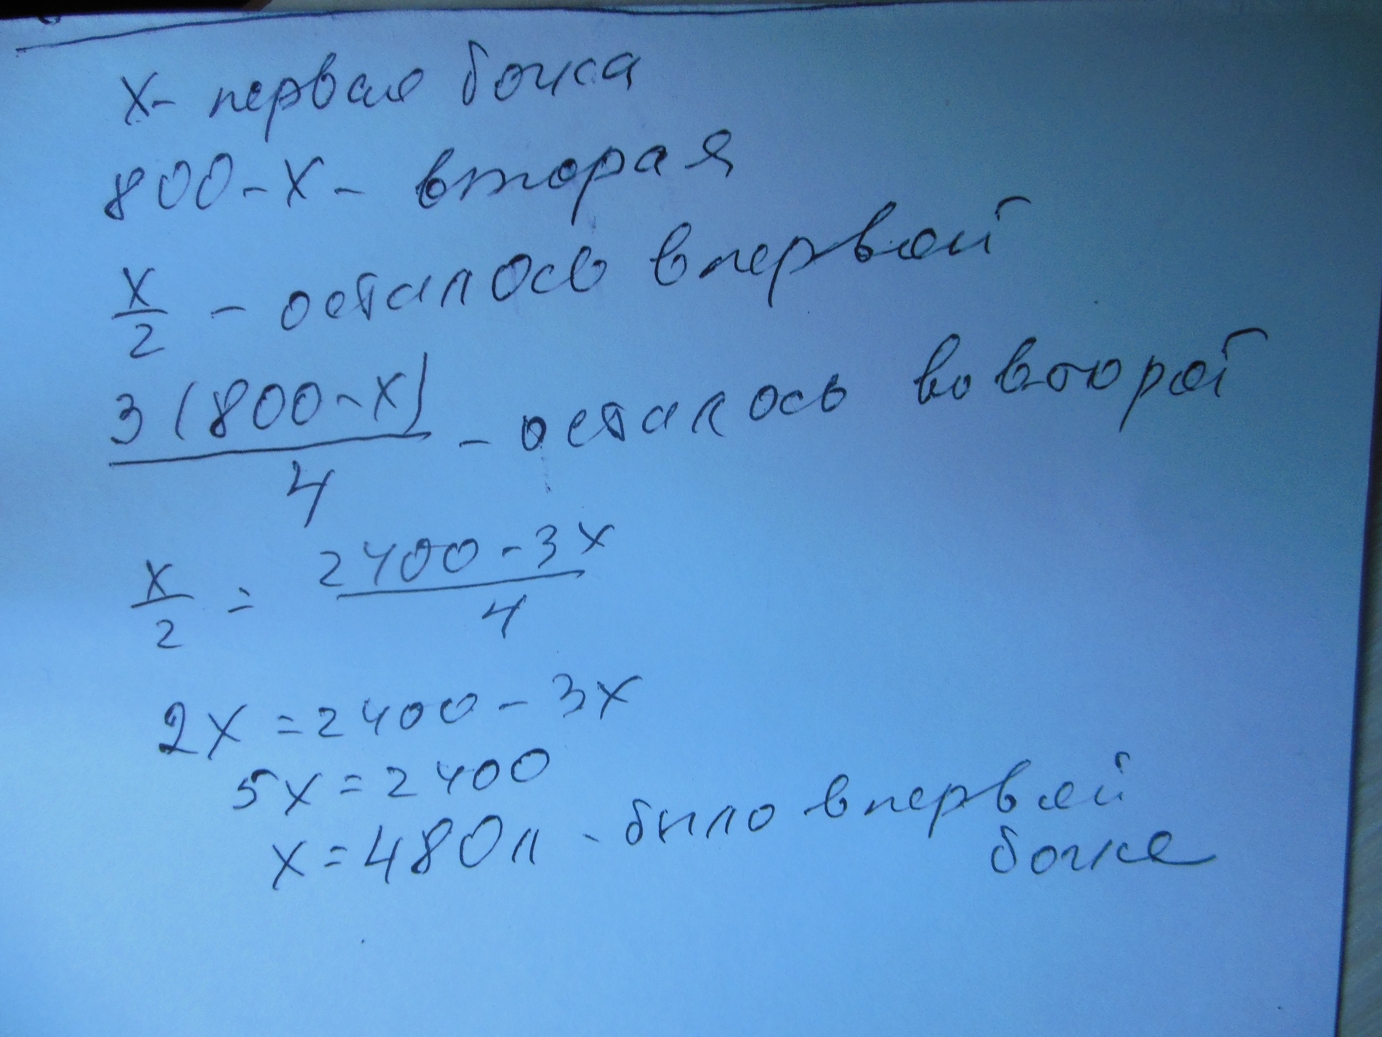 x - первая бочка
800 - x - вторая
x/2 - осталось в первой
3(800 - x)/4 - осталось во второй
x/2 = 2400 - 3x/4
2x = 2400 - 3x
5x = 2400
x = 480 л - было в первой
бочке